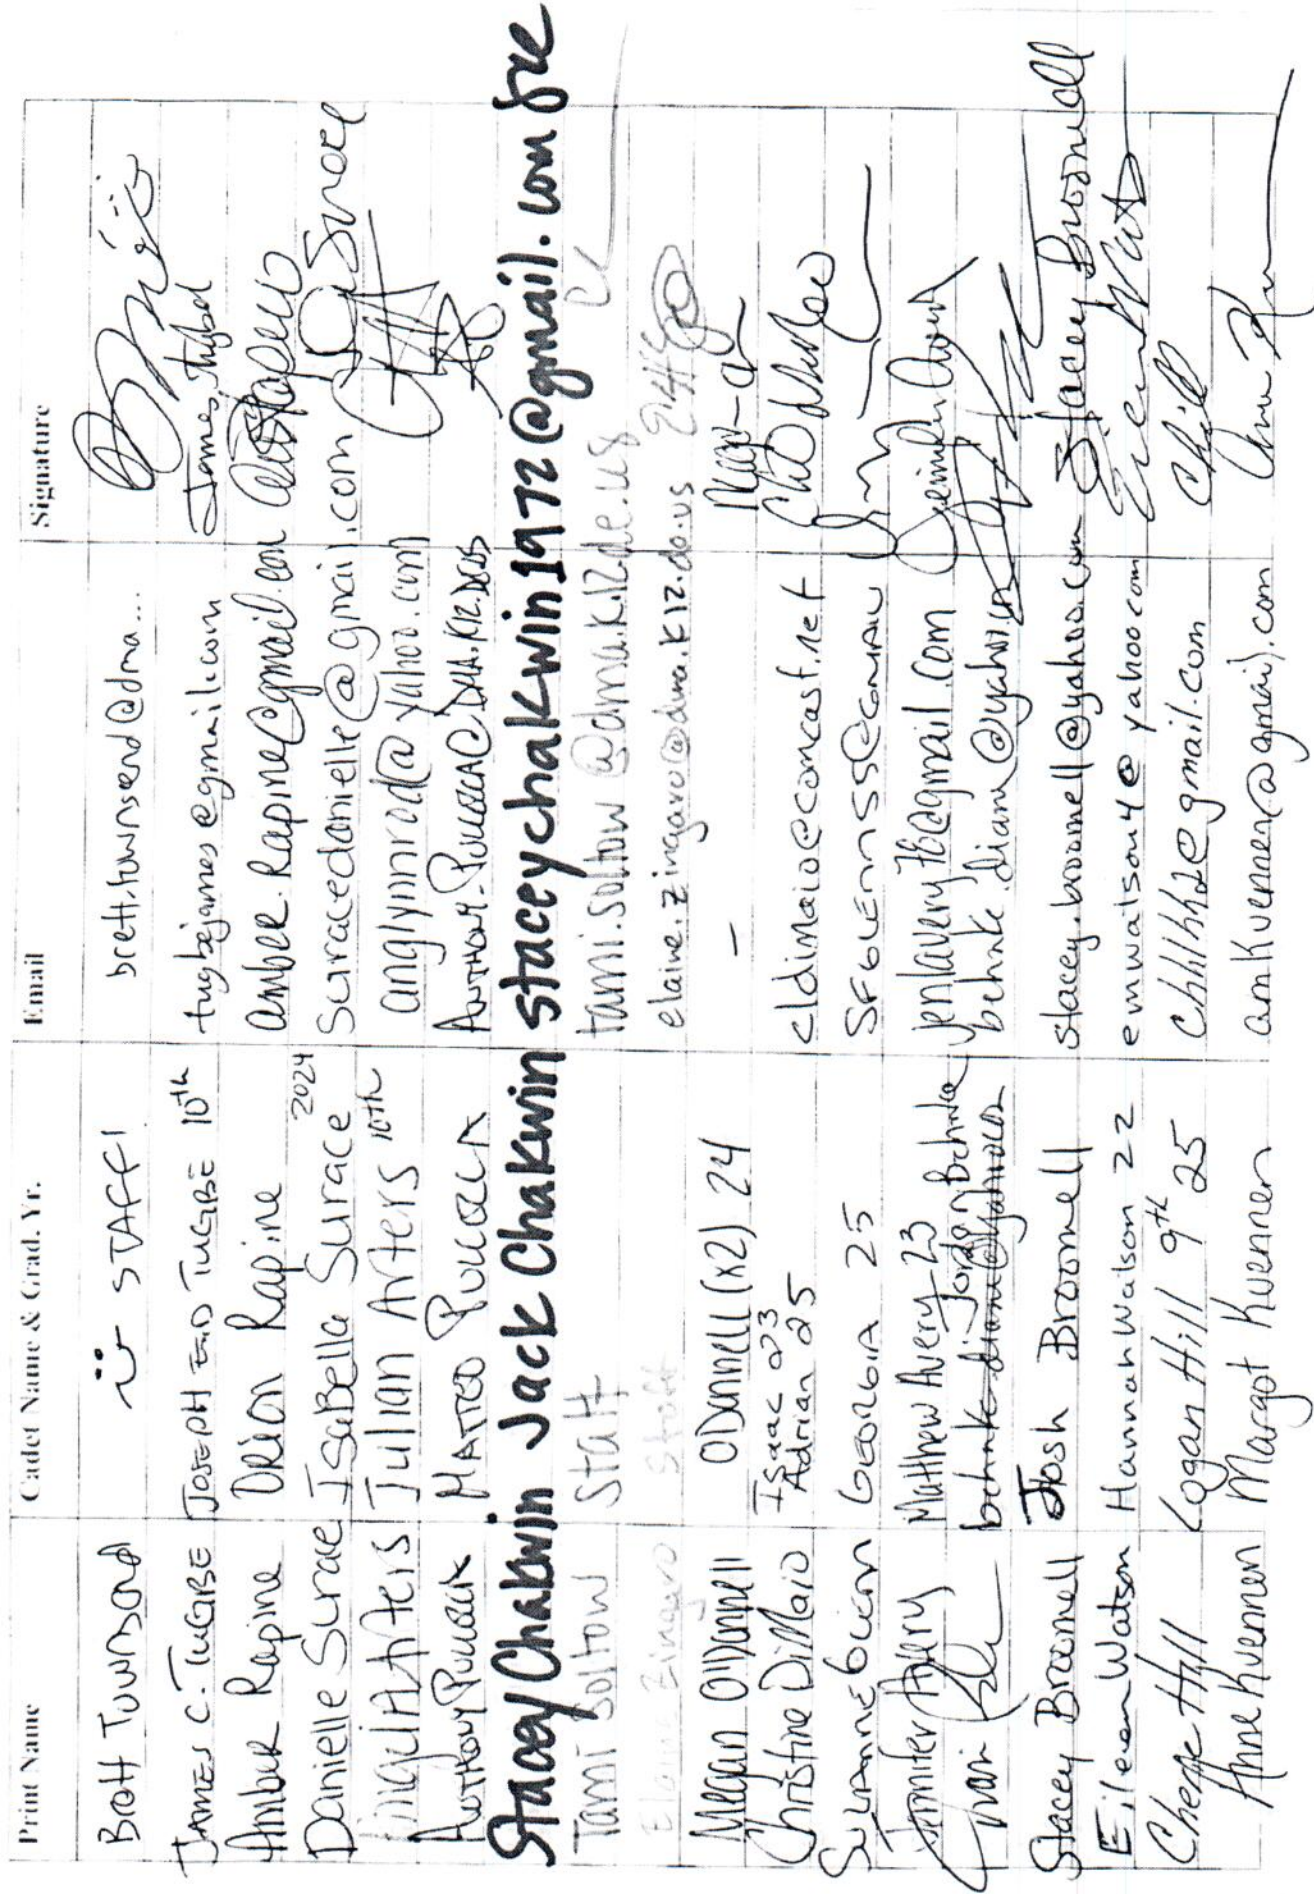 Print Name Cadet Name & Grad. Yr. Email Signature
Brett Townsend STAFF! brett.townsend@dma...
JAMES C. TUGBE JOSEPH TUGBE 10th tugbejames@gmail.com James Tugbe
Amber Rapine Orion Rapine amber.rapine@gmail.com
Danielle Surace Isabella Surace 2024 suracedanielle@gmail.com Surace
Arters Julian Arters 10th anglynnrod@yahoo.com
ANTHONY PULLELLA MATTEO PULLELLA ANTHONY.PULLELLA@DMA.K12.DE.US
Stacey Chakwin Jack Chakwin staceychakwin1972@gmail.com
Tami Soltow Staff tami.soltow@dma.k12.de.us
Elaine Zingaro Staff elaine.zingaro@dma.k12.de.us
Megan O'Donnell ODonnell (x2) 24 –
Christine DiMaio Isaac 23 Adrian 25 cldimaio@comcast.net
SUZANNE GEORGIA 25
Jennifer Avery Matthew Avery 23 jenlavery76@gmail.com
Jordan Behnke behnke.diane@yahoo.com
Stacey Broomell Josh Broomell stacey.broomell@yahoo.com Stacey Broomell
Eileen Watson Hannah Watson 22 emwatson4@yahoo.com
Hill Logan Hill 9th 25 chhlhh2@gmail.com CHill
Anne Kuennen Margot Kuennen amkuennen@gmail.com